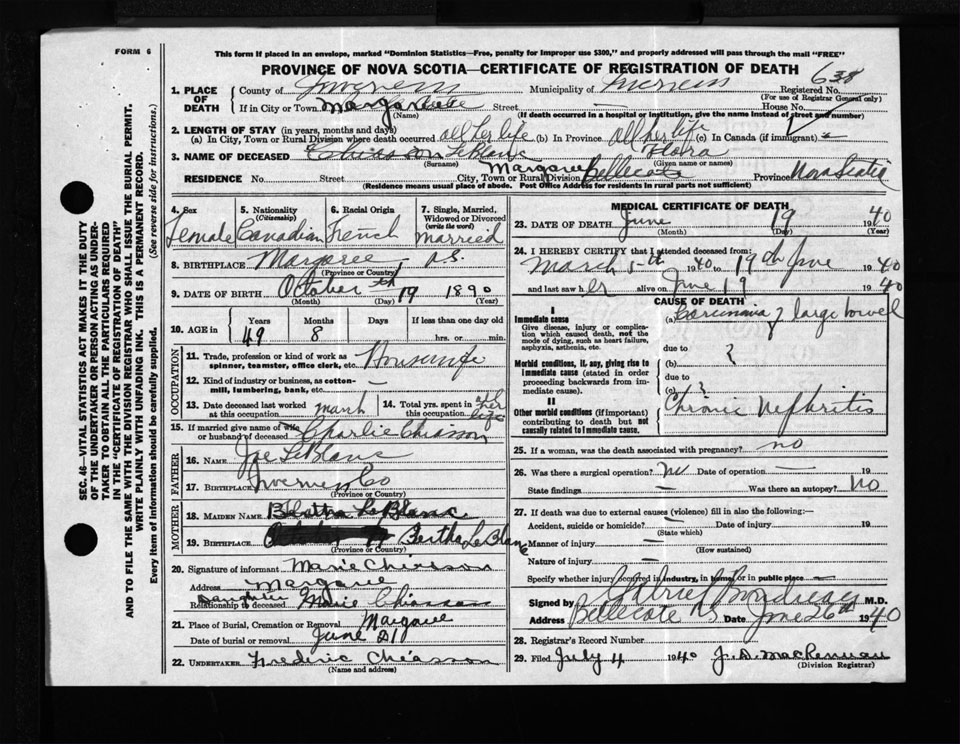 FORM 6
This form if placed in an envelope, marked "Dominion Statistics—Free, penalty for improper use $300," and properly addressed will pass through the mail "FREE"
PROVINCE OF NOVA SCOTIA—CERTIFICATE OF REGISTRATION OF DEATH
638
1. PLACE OF DEATH County of Inverness Municipality of Inverness Registered No.
(For use of Registrar General only)
If in City or Town Margaree Street — House No.
(Name) (If death occurred in a hospital or institution, give the name instead of street and number)
2. LENGTH OF STAY (in years, months and days)
(a) In City, Town or Rural Division where death occurred all her life (b) In Province all her life (c) In Canada (if immigrant)
3. NAME OF DECEASED Chiasson LeBlanc Flora
(Surname) (Given name or names)
RESIDENCE No. Street City, Town or Rural Division Margaree Bellecote Province Nova Scotia
(Residence means usual place of abode. Post Office Address for residents in rural parts not sufficient)
4. Sex
Female
5. Nationality (Citizenship)
Canadian
6. Racial Origin
French
7. Single, Married, Widowed or Divorced (write the word)
married
8. BIRTHPLACE Margaree, N.S.
(Province or Country)
9. DATE OF BIRTH October 19th 1890
(Month) (Day) (Year)
10. AGE in Years Months Days If less than one day old
49 8 hrs. or min.
OCCUPATION
11. Trade, profession or kind of work as spinner, teamster, office clerk, etc. Housewife
12. Kind of industry or business, as cotton-mill, lumbering, bank, etc. —
13. Date deceased last worked at this occupation march
14. Total yrs. spent in this occupation all her life
15. If married give name of wife or husband of deceased Charlie Chiasson
FATHER
16. Name Joe LeBlanc
17. Birthplace Inverness Co
(Province or Country)
MOTHER
18. MAIDEN NAME LeBlanc
19. BIRTHPLACE Bertha LeBlanc
(Province or Country)
20. Signature of informant Marie Chiasson
Address Margaree
Relationship to deceased Daughter Marie Chiasson
21. Place of Burial, Cremation or Removal Margaree
Date of burial or removal June 21
22. UNDERTAKER Frederic Chiasson
(Name and address)
MEDICAL CERTIFICATE OF DEATH
23. DATE OF DEATH June 19 1940
(Month) (Day) (Year)
24. I HEREBY CERTIFY that I attended deceased from:
March 5th 1940 to 19th June 1940
and last saw her alive on June 19 1940
CAUSE OF DEATH
I
Immediate cause
Give disease, injury or complication which caused death, not the mode of dying, such as heart failure, asphyxia, asthenia, etc.
(a) Carcinoma of large bowel
due to
Morbid conditions, if any, giving rise to immediate cause (stated in order proceeding backwards from immediate cause).
(b) ?
due to
(c) ?
II
Other morbid conditions (if important) contributing to death but not causally related to immediate cause.
Chronic Nephritis
25. If a woman, was the death associated with pregnancy? no
26. Was there a surgical operation? no Date of operation — 19
State findings — Was there an autopsy? No
27. If death was due to external causes (violence) fill in also the following:—
Accident, suicide or homicide? — Date of injury 19
(State which)
Manner of injury —
(How sustained)
Nature of injury —
Specify whether injury occurred in industry, in home, or in public place —
Signed by Gabriel Boudreau M.D.
Address Bellecote NS Date June 26th 1940
28. Registrar's Record Number
29. Filed July 4 1940 J. D. MacLennan
(Division Registrar)
SEC. 46—VITAL STATISTICS ACT MAKES IT THE DUTY
OF THE UNDERTAKER OR PERSON ACTING AS UNDER-
TAKER TO OBTAIN ALL THE PARTICULARS REQUIRED
IN THE "CERTIFICATE OF REGISTRATION OF DEATH"
AND TO FILE THE SAME WITH THE DIVISION REGISTRAR WHO SHALL ISSUE THE BURIAL PERMIT.
WRITE PLAINLY WITH UNFADING INK. THIS IS A PERMANENT RECORD.
Every item of information should be carefully supplied. (See reverse side for instructions.)